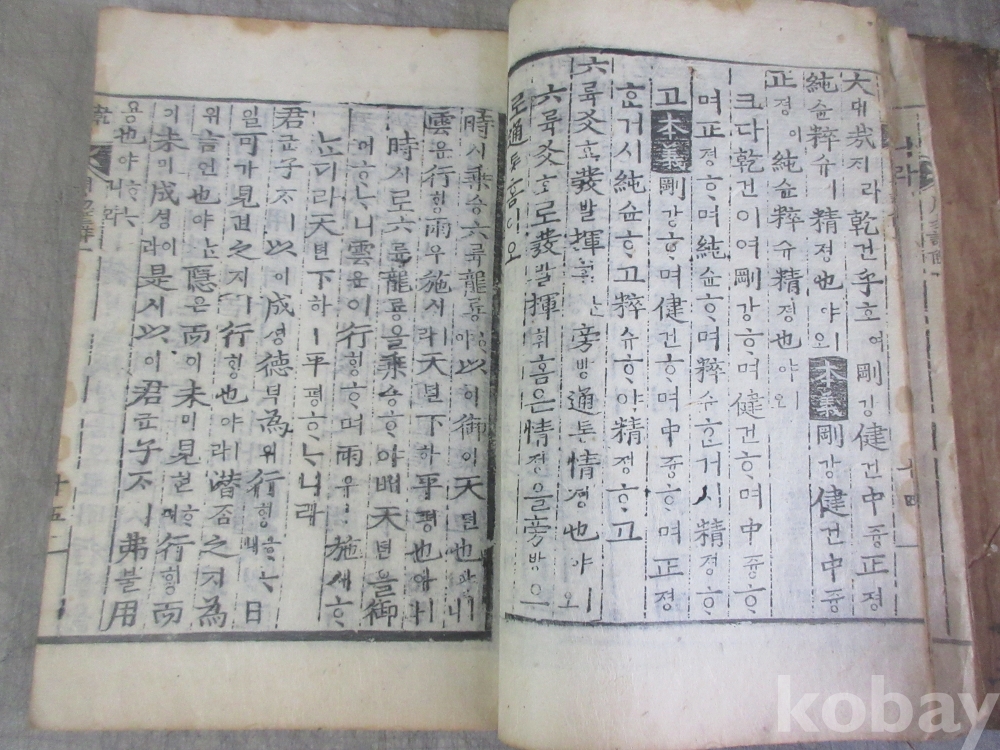 大대哉재라乾건乎호여剛강健건中듕正졍
純슌粹슈ㅣ精졍也야ㅣ오本義剛강健건中듕
正졍이純슌粹슈精졍也야ㅣ오
크다乾건이여剛강ᄒᆞ며健건ᄒᆞ며中듕ᄒᆞ
며正졍ᄒᆞ며純슌ᄒᆞ며粹슈ᄒᆞᆫ거시精졍ᄒᆞ
고本義剛강ᄒᆞ며健건ᄒᆞ며中듕ᄒᆞ며正졍
ᄒᆞᆫ거시純슌ᄒᆞ고粹슈ᄒᆞ야精졍ᄒᆞ고
六륙爻효發발揮휘ᄂᆞᆫ旁방通통情졍也야ㅣ오
六륙爻효로發발揮휘홈은情졍을旁방으
로通통홈이오
時시乘승六륙龍룡ᄒᆞ야以이御어天텬也야ㅣ니
雲운行ᄒᆡᆼ雨우施시라天텬下하平평也야ㅣ니
時시로六륙龍룡을乘승ᄒᆞ야ᄡᅥ天텬을御
어ᄒᆞᄂᆞ니雲운이行ᄒᆡᆼᄒᆞ며雨우ㅣ施시ᄒᆞ
ᄂᆞ디라天텬下하ㅣ平평ᄒᆞᄂᆞ니라
君군子ᄌᆞㅣ以이成셩德덕為위行ᄒᆡᆼᄒᆞᄂᆞ니日
일可가見견之지行ᄒᆡᆼ也야ㅣ라潛ᄌᆞᆷ之지為
위言언也야ᄂᆞᆫ隱은而이未미見현ᄒᆞ며行ᄒᆡᆼ而
이未미成셩이라是시以이君군子ᄌᆞㅣ弗블用
용也야ᄒᆞᄂᆞ니라
十五
kobay